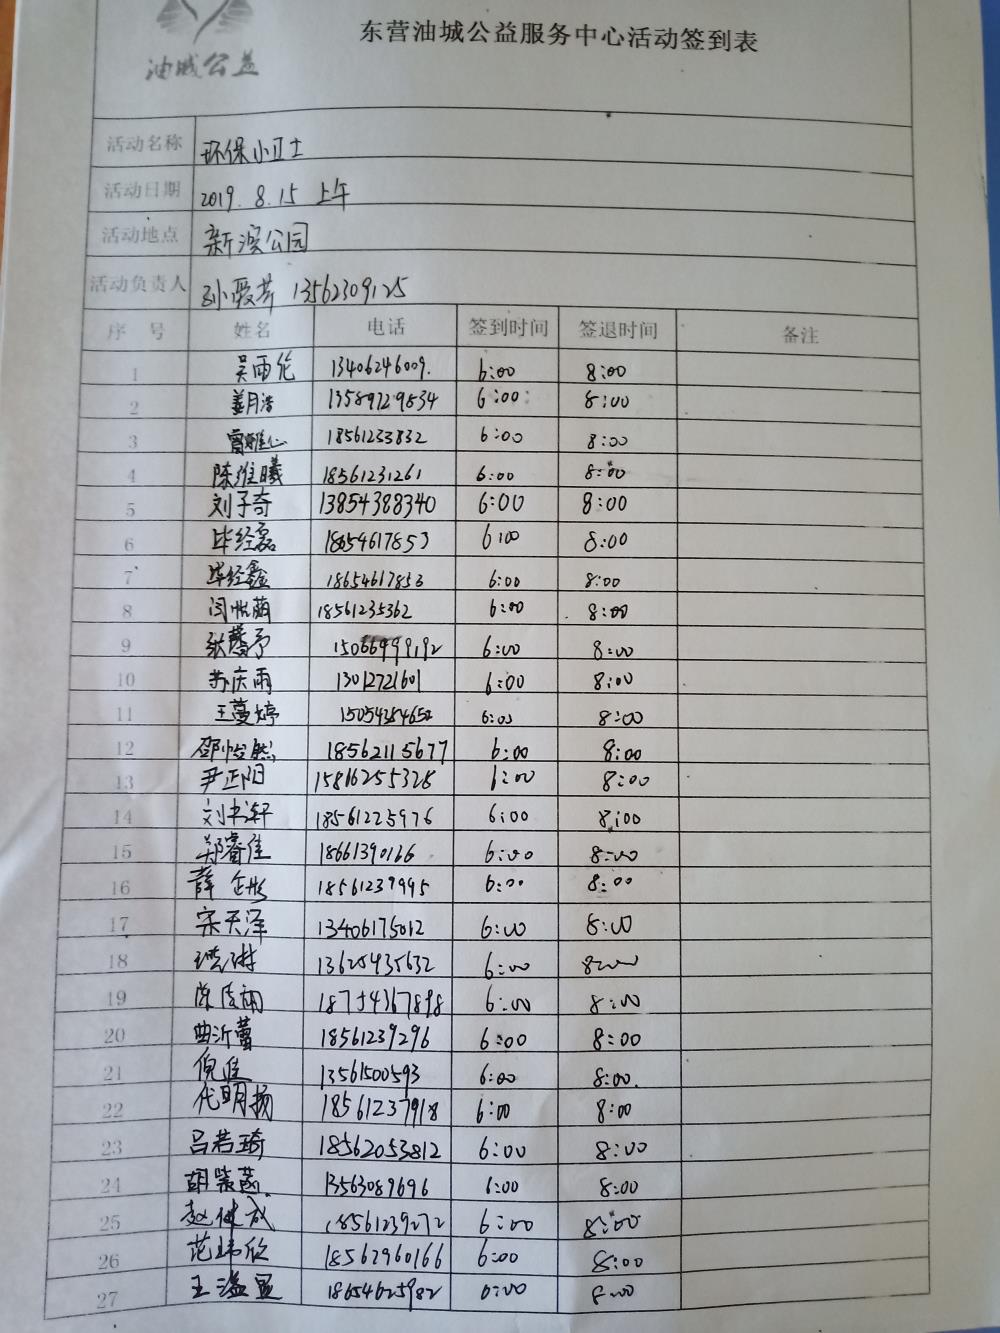 油城公益
东营油城公益服务中心活动签到表
活动名称 环保小卫士
活动日期 2019.8.15 上午
活动地点 新滨公园
活动负责人 孙爱芳 13562309125
序 号 姓名 电话 签到时间 签退时间 备注
1 吴雨伦 13406246009. 6:00 8:00
2 姜月浩 13589729834 6:00 8:00
3 曾雅心 18561233832 6:00 8:00
4 陈维曦 18561231261 6:00 8:00
5 刘子奇 13854388340 6:00 8:00
6 毕经磊 18654617853 6:00 8:00
7 毕经鑫 18654617853 6:00 8:00
8 闫帆萌 18561235362 6:00 8:00
9 张馨予 15066999192 6:00 8:00
10 苏庆雨 13012721601 6:00 8:00
11 王蔓婷 15054384652 6:00 8:00
12 邵悛然 18562115677 6:00 8:00
13 尹正阳 15816255328 6:00 8:00
14 刘书轩 18561225976 6:00 8:00
15 郑睿佳 18661390166 6:00 8:00
16 薛 18561239995 6:00 8:00
17 宋天泽 13406175012 6:00 8:00
18 13625435632 6:00 8:00
19 陈 18754367898 6:00 8:00
20 曲沂蕾 18561239296 6:00 8:00
21 倪佳 13561500593 6:00 8:00.
22 代明扬 18561237918 6:00 8:00
23 吕若琦 18562053812 6:00 8:00
24 胡紫菡 13563089696 6:00 8:00
25 赵健成 18561239272 6:00 8:00
26 范玮欣 18562960166 6:00 8:00
27 王溢 18654625982 6:00 8:00